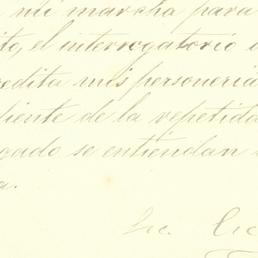 mi marcha para
ito, el interrogatorio
redita mis personeria
diente de la repetida
gado se entiendan
a.
Lic.